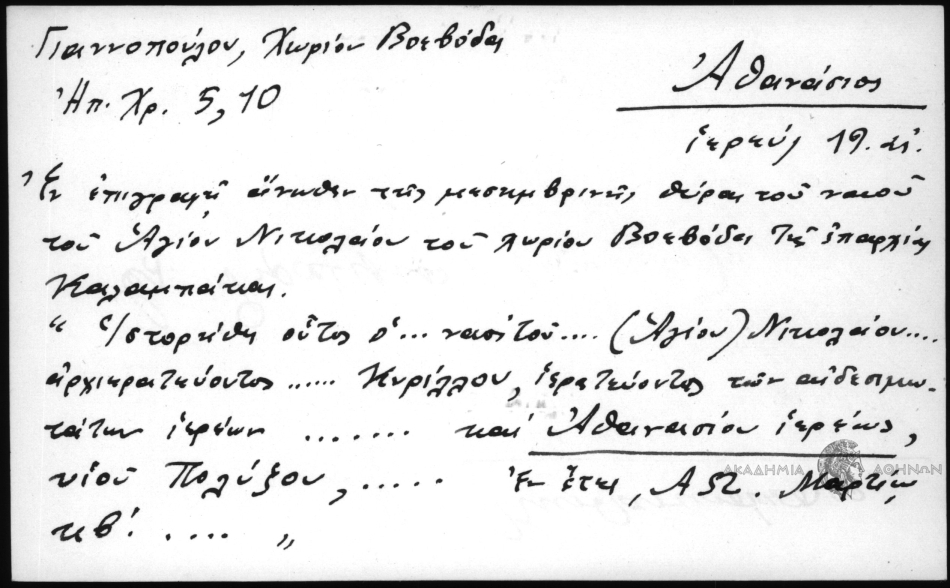 Γιαννοπούλου, Χωρίον Βοεβόδα
Ἠπ. Χρ. 5, 10
Ἀθανάσιος
ἱερεύς 19. αἰ.
Ἐν ἐπιγραφῇ ἄνωθεν τῆς μεσημβρινῆς θύρας τοῦ ναοῦ
τοῦ Ἁγίου Νικολάου τοῦ χωρίου Βοεβόδα τῆς ἐπαρχίας
Καλαμπάκας.
“ Ἱστορήθη οὗτος ὁ ... ναὸς τοῦ .... (Ἁγίου) Νικολάου ....
ἀρχιερατεύοντος ...... Κυρίλλου, ἱερατεύοντος τῶν αἰδεσιμω-
τάτων ἱερέων ....... καὶ Ἀθανασίου ἱερέως,
υἱοῦ Πολύξου, ..... Ἐν ἔτει, ΑΩ. Μαρτίῳ
κβ'. .... „
ΑΚΑΔΗΜΙΑ ΑΘΗΝΩΝ